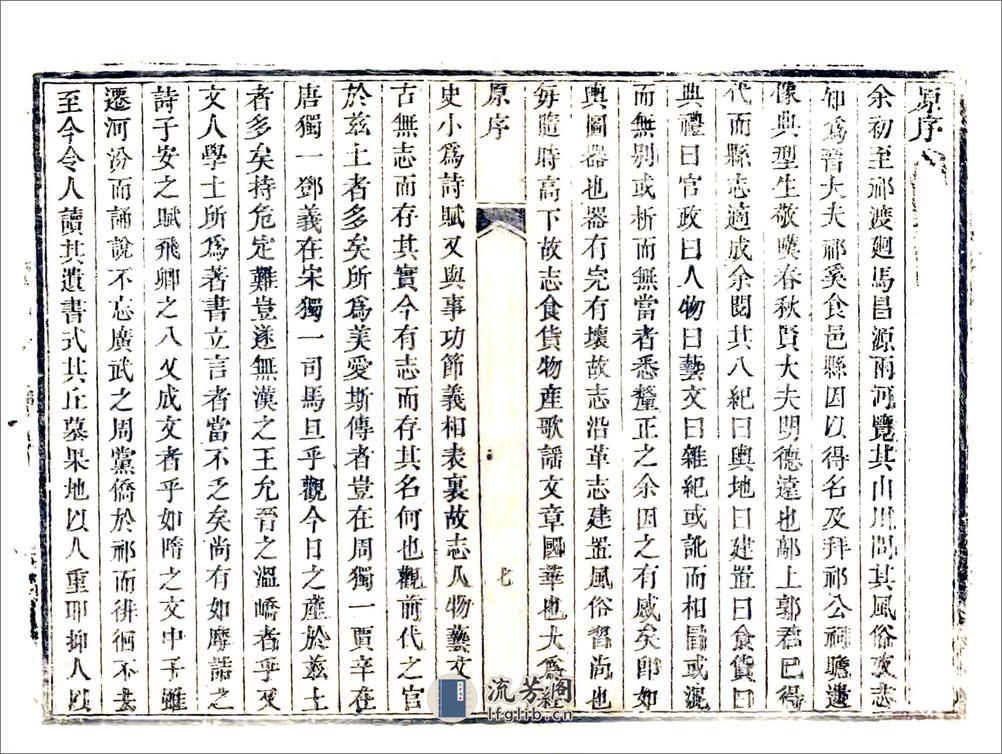 原序
余初至祁渡迴馬昌源兩河覽其山川問其風俗攷志
知爲晉大夫祁奚食邑縣因以得名及拜祁公祠瞻遺
像典型生敬嘆春秋賢大夫明德遠也鄗上郭君已得
代而縣志適成余閱其八紀曰輿地曰建置曰食貨曰
典禮曰官政曰人物曰藝文曰雜紀或訛而相冒或混
而無別或析而無當者悉釐正之余因之有感矣卽如
輿圖器也器有完有壞故志沿革志建置風俗習尚也
每隨時高下故志食貨物產歌謠文章國華也大爲經
原序
七
史小爲詩賦又與事功節義相表裏故志人物藝文
古無志而存其實今有志而存其名何也觀前代之官
於茲土者多矣所爲美愛斯傳者豈在周獨一賈辛在
唐獨一鄧義在宋獨一司馬旦乎觀今日之產於茲土
者多矣持危定難豈遂無漢之王允晉之溫嶠者乎又
文人學士所爲著書立言者當不乏矣尚有如摩詰之
詩子安之賦飛卿之八叉成文者乎如隋之文中子雖
遷河汾而誦說不忘廣武之周黨僑於祁而徘徊不去
至今令人讀其遺書式其丘墓果地以人重耶抑人以
流芳閣
lfglib.cn